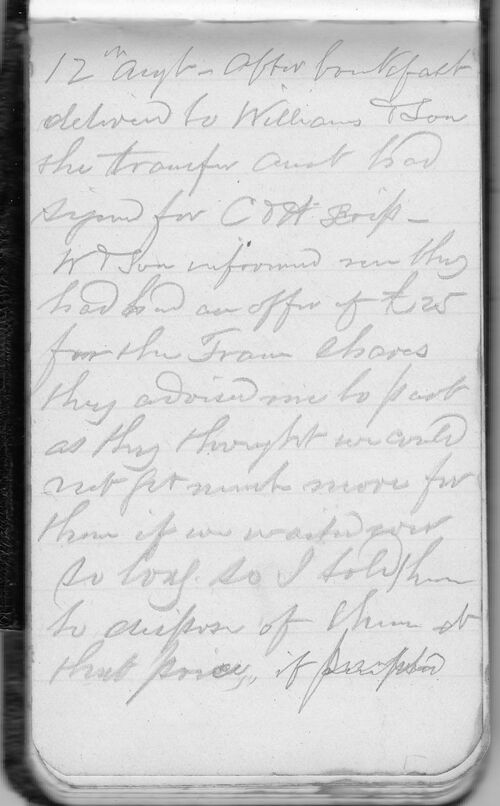 12th Augt - After breakfast
delivered to Williams & Son
the transfer Aunt had
signed for C & H Scrip -
W & Son informed me they
had had an offer of £25
for the Tram Shares
they advised me to part
as they thought we could
not get much more for
them if we waited ever
so long. So I told them
to dispose of them at
that price, if